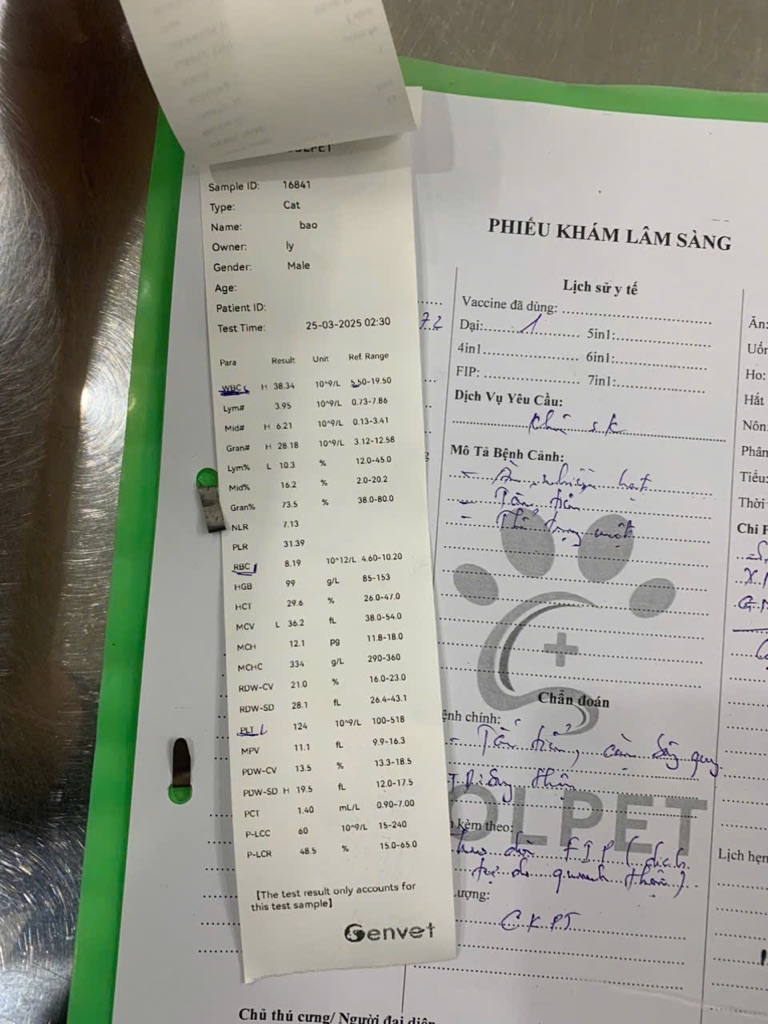 OLPET
Sample ID: 16841
Type: Cat
Name: bao
Owner: ly
Gender: Male
Age:
Patient ID:
Test Time: 25-03-2025 02:30
Para Result Unit Ref. Range
WBC H 38.34 10^9/L 5.50-19.50
Lym# 3.95 10^9/L 0.73-7.86
Mid# H 6.21 10^9/L 0.13-3.41
Gran# H 28.18 10^9/L 3.12-12.58
Lym% L 10.3 % 12.0-45.0
Mid% 16.2 % 2.0-20.2
Gran% 73.5 % 38.0-80.0
NLR 7.13
PLR 31.39
RBC 8.19 10^12/L 4.60-10.20
HGB 99 g/L 85-153
HCT 29.6 % 26.0-47.0
MCV L 36.2 fL 38.0-54.0
MCH 12.1 pg 11.8-18.0
MCHC 334 g/L 290-360
RDW-CV 21.0 % 16.0-23.0
RDW-SD 28.1 fL 26.4-43.1
PLT 124 10^9/L 100-518
MPV 11.1 fL 9.9-16.3
PDW-CV 13.5 % 13.3-18.5
PDW-SD H 19.5 fL 12.0-17.5
PCT 1.40 mL/L 0.90-7.00
P-LCC 60 10^9/L 15-240
P-LCR 48.5 % 15.0-65.0
[The test result only accounts for
this test sample]
Genvet
PHIẾU KHÁM LÂM SÀNG
7.2
Lịch sử y tế
Vaccine đã dùng:
Dại: 1 5in1:
4in1 6in1:
FIP: 7in1:
Dịch Vụ Yêu Cầu:
Khám sk
Mô Tả Bệnh Cảnh:
- Ăn nhiều hạt
- Tàn tiền
- Thể trạng
Chẩn đoán
ệnh chính:
thận
kèm theo:
FIP (dịch
tự do quanh thận)
ượng:
CKPT
OLPET
Chủ thú cưng/ Người đại diện
Ăn:
Uốn
Ho:
Hắt
Nôn:
Phân
Tiểu:
Thời
Chi P
Lịch hẹn